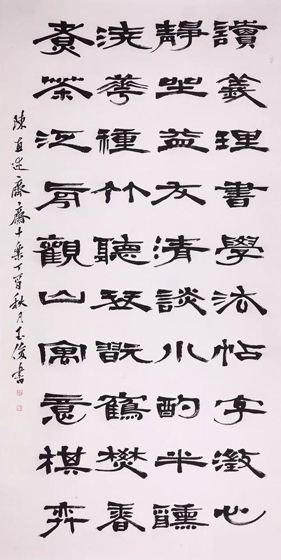 讀義理書學法帖字澂心
靜坐益友清談小酌半醺
澆花種竹聽琴翫鶴焚香
煑茶泛舟觀山寓意棋弈
陳直述齊齋十樂丁酉秋月玉俊書